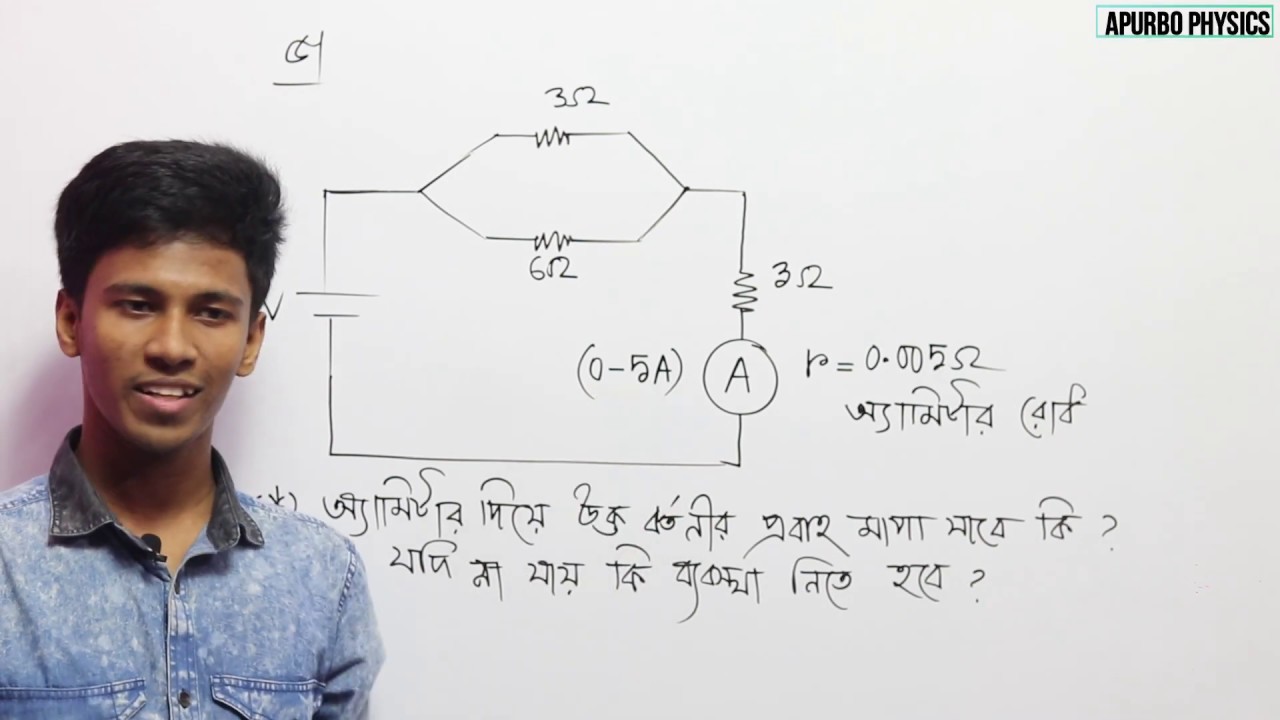 APURBO PHYSICS
3Ω
6Ω
3Ω
V
(0-5A) A r = 0.005Ω
অ্যামিটার রোধ
*) অ্যামিটার দিয়ে উক্ত বর্তনীর প্রবাহ মাপা যাবে কি ?
যদি না যায় কি ব্যবস্থা নিতে হবে ?